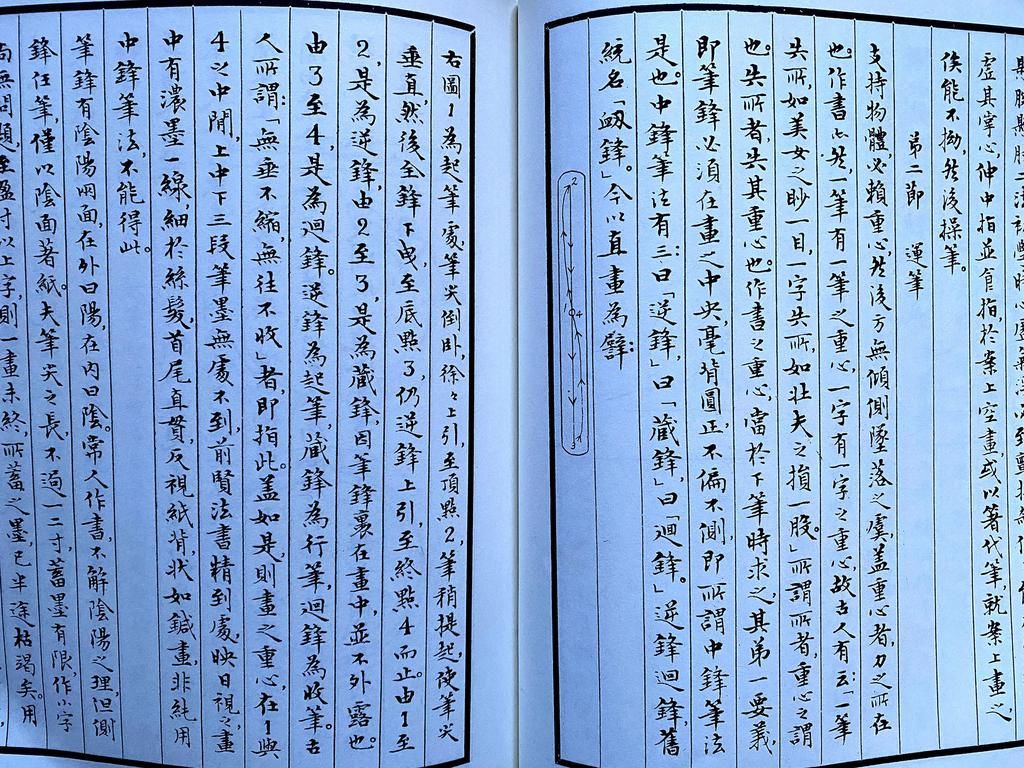 虛其掌心,伸中指並食指,於案上空畫,或以箸代筆,就案上畫之,
俟能不拗,然後操筆。
第二節 運筆
支持物體,必賴重心,然後方無傾側墜落之虞,蓋重心者,力之所在
也。作書亦然,一筆有一筆之重心,一字有一字之重心,故古人有云:「一筆
失所,如美女之眇一目,一字失所,如壯夫之損一股。」所謂所者,重心之謂
也。失所者,失其重心也。作書之重心,當於下筆時求之,其第一要義,
即筆鋒必須在畫之中央,毫背圓正,不偏不側,即所謂中鋒筆法
是也。中鋒筆法有三:曰「逆鋒」,曰「藏鋒」,曰「迴鋒。」逆鋒迴鋒,舊
統名「衂鋒。」今以直畫為譬:
2
1 4
3
右圖1為起筆處,筆尖倒卧,徐々上引,至頂點2,筆稍提起,使筆尖
垂直,然後全鋒下曳,至底點3,仍逆鋒上引,至終點4而止。由1至
2,是為逆鋒,由2至3,是為藏鋒,因筆鋒裹在畫中,並不外露也。
由3至4,是為迴鋒。逆鋒為起筆,藏鋒為行筆,迴鋒為收筆。古
人所謂:「無垂不縮,無往不收」者,即指此。蓋如是,則畫之重心,在1與
4之中間,上中下三段,筆墨無處不到,前賢法書精到處,映日視之,畫
中有濃墨一線,細於絲髮,首尾直貫,反視紙背,狀如鍼畫,非純用
中鋒筆法,不能得此。
筆鋒有陰陽兩面,在外曰陽,在內曰陰。常人作書,不解陰陽之理,但側
鋒任筆,僅以陰面著紙。夫筆尖之長,不過一二寸,蓄墨有限,作小字
尚無問題,至盈寸以上字,則一畫未終,所蓄之墨,已半途枯渴矣。用